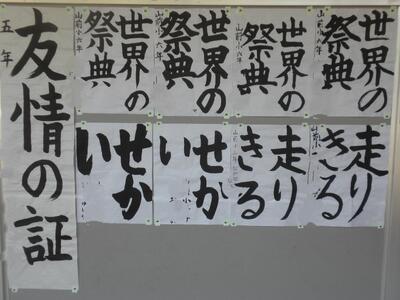 五年
友情の証
世界の
祭典
山前小六年
世界の
祭典
山前小六年
世界の
祭典
山前小六年
世界の
祭典
山前小六年
せか
い
せか
い
走り
きる
走り
きる